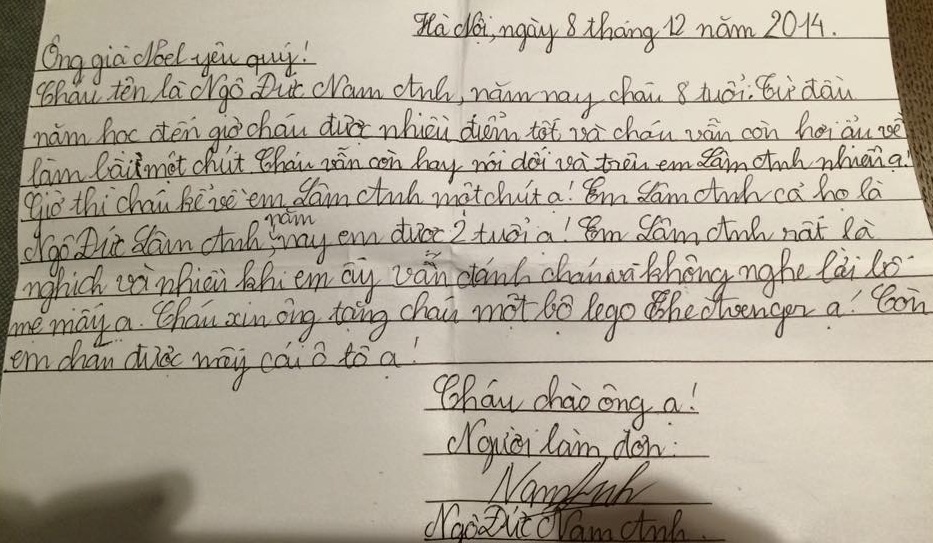 Hà Nội, ngày 8 tháng 12 năm 2014.
Ông già Noel yêu quý!
Cháu tên là Ngô Đức Nam Anh, năm nay cháu 8 tuổi. Từ đầu
năm học đến giờ cháu được nhiều điểm tốt và cháu vẫn còn hơi ẩu về
làm bài một chút. Cháu vẫn còn hay nói dối và trêu em Lâm Anh nhiều ạ!
Giờ thì cháu kể về em Lâm Anh một chút ạ! Em Lâm Anh cả họ là
Ngô Đức Lâm Anh, năm nay em được 2 tuổi ạ! Em Lâm Anh rất là
nghịch và nhiều khi em ấy vẫn đánh cháu và không nghe lời bố
mẹ mấy ạ. Cháu xin ông tặng cháu một bộ lego The Avenger ạ! Còn
em cháu được mấy cái ô tô ạ!
Cháu chào ông ạ!
Người làm đơn:
Nam Anh
Ngô Đức Nam Anh.